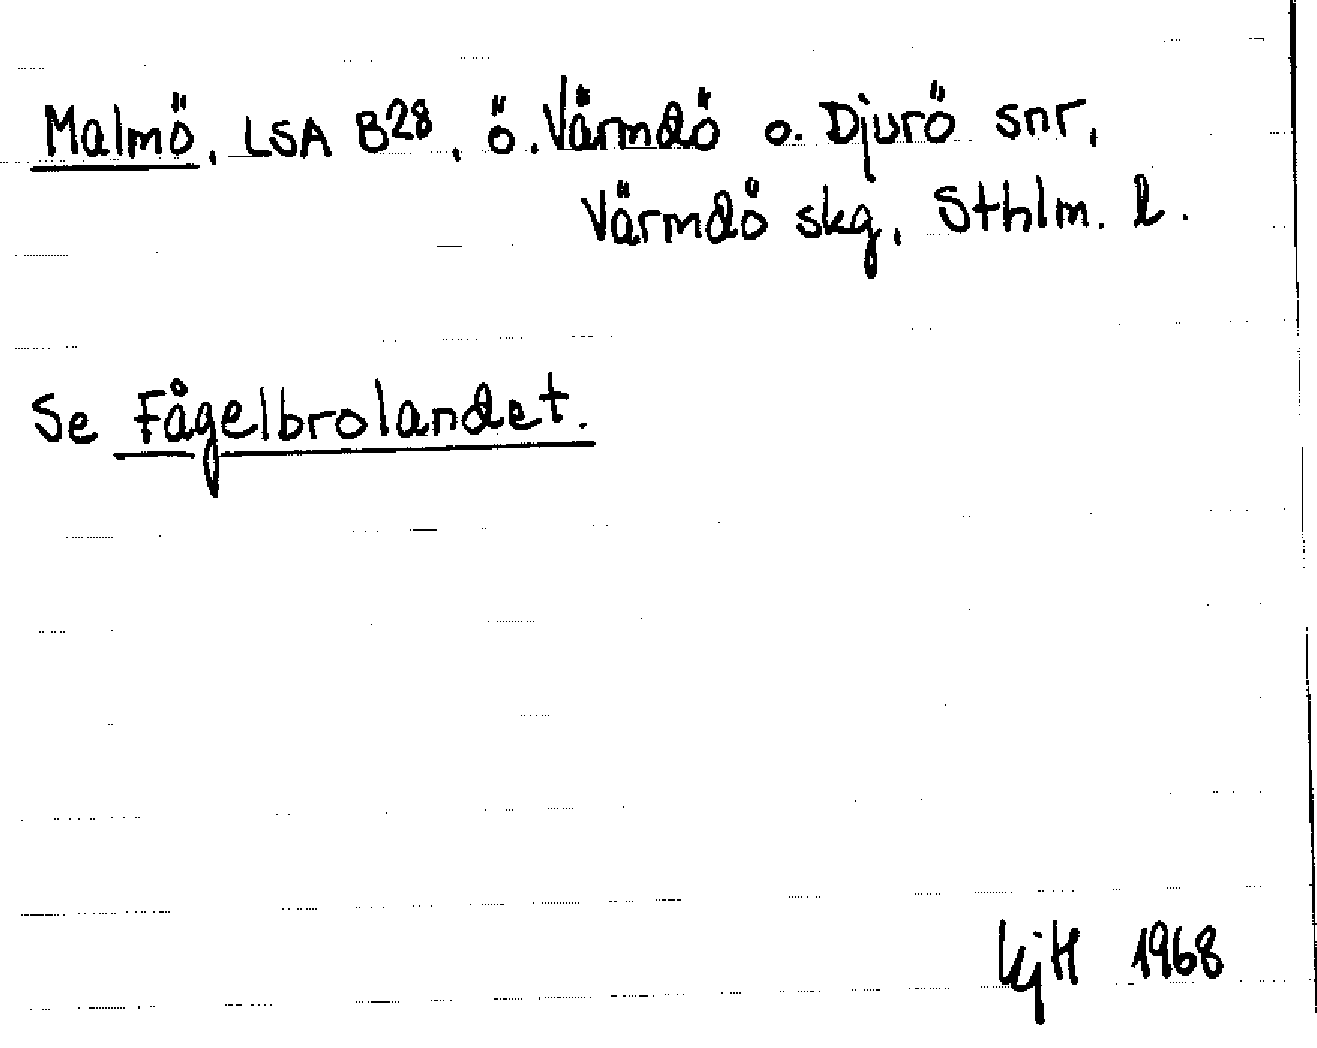 Malmö, LSA B28, ö. Värmdö o. Djurö snr,
Värmdö skg, Sthlm. l.
Se Fågelbrolandet.
KjH 1968